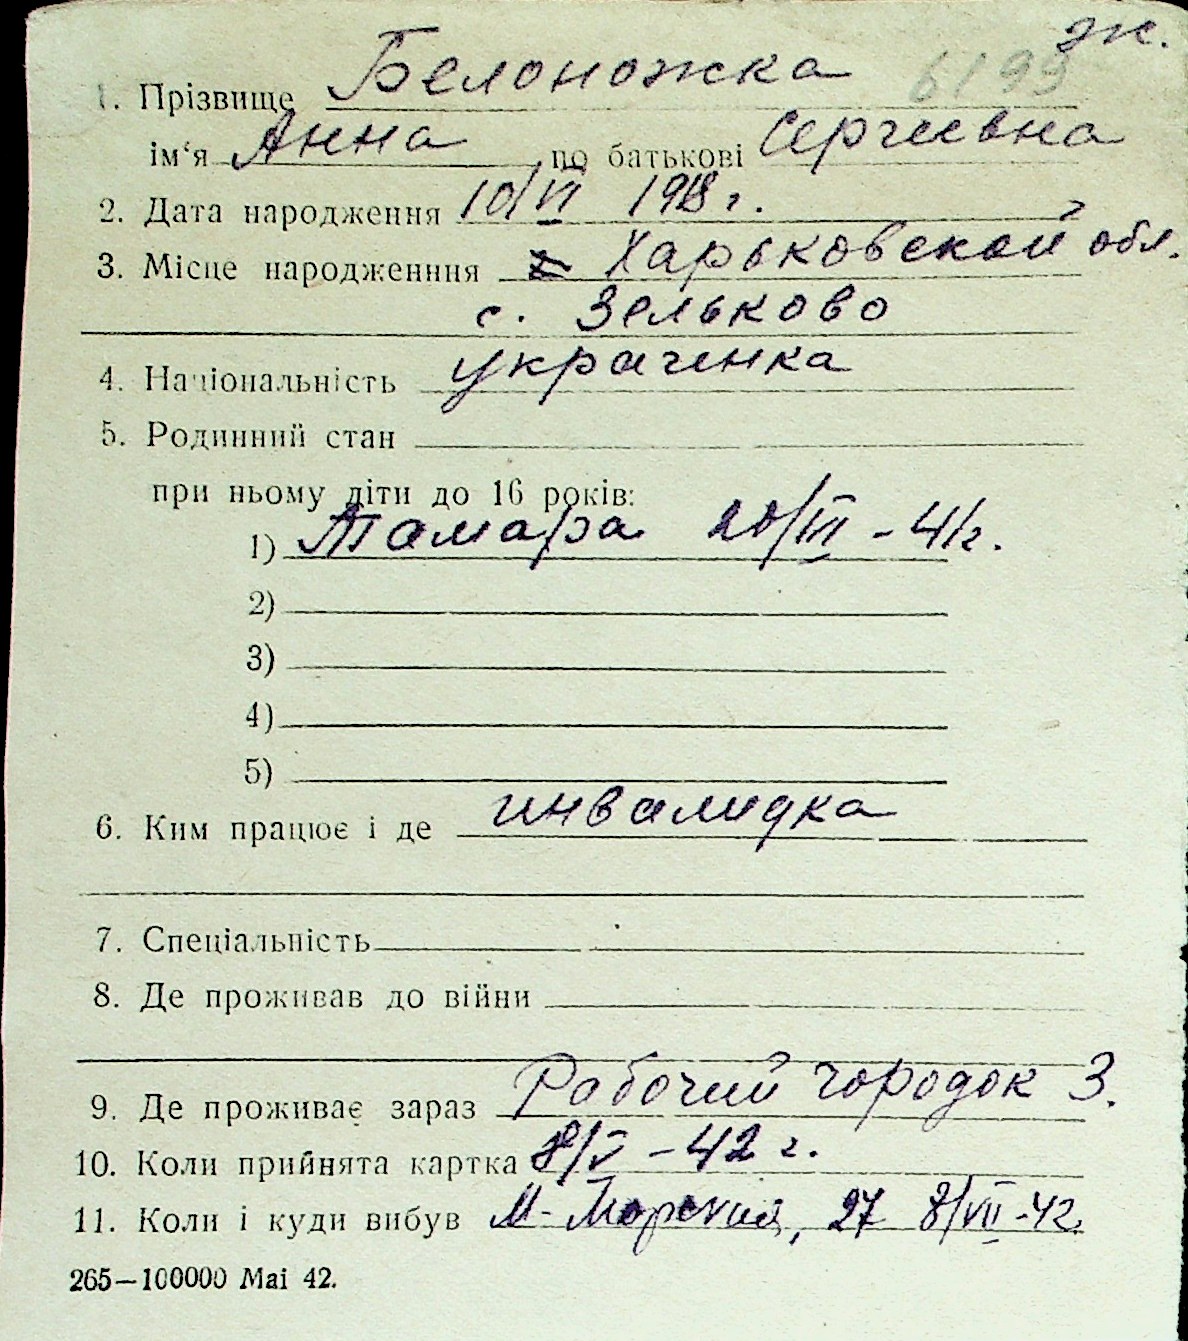 эк.
6199
1. Прізвище Белоножка
ім'я Анна по батькові Сергеевна
2. Дата народження 10/VI 1918 г.
3. Місце народженння Харьковской обл.
с. Зельково
4. Національність украинка
5. Родинний стан
при ньому діти до 16 років:
1) Тамара 20/III - 41 г.
2)
3)
4)
5)
6. Ким працює і де инвалидка
7. Спеціальність
8. Де проживав до війни
9. Де проживає зараз Рабочий городок 3.
10. Коли прийнята картка 8/V - 42 г.
11. Коли і куди вибув М-Морская, 27 8/VII-42
265—100000 Mai 42.